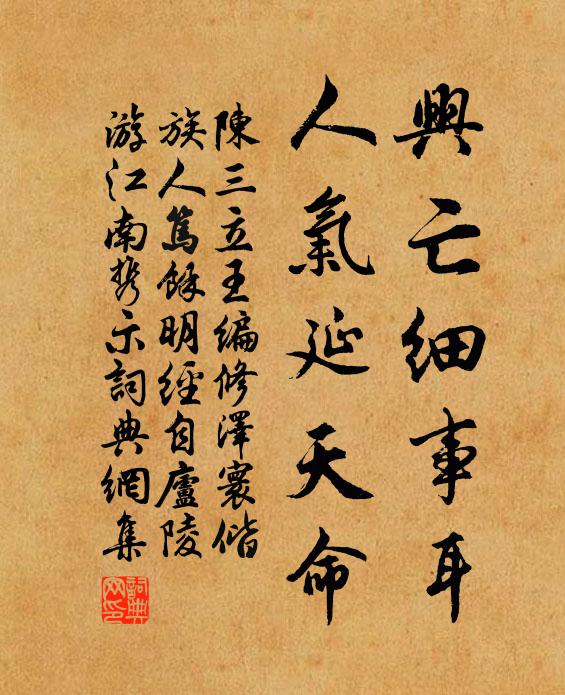 興亡細事耳
人氣延天命
陳三立王編修澤寰偕
族人篤餘明經自廬陵
游江南携示詞典網集
詞典網印